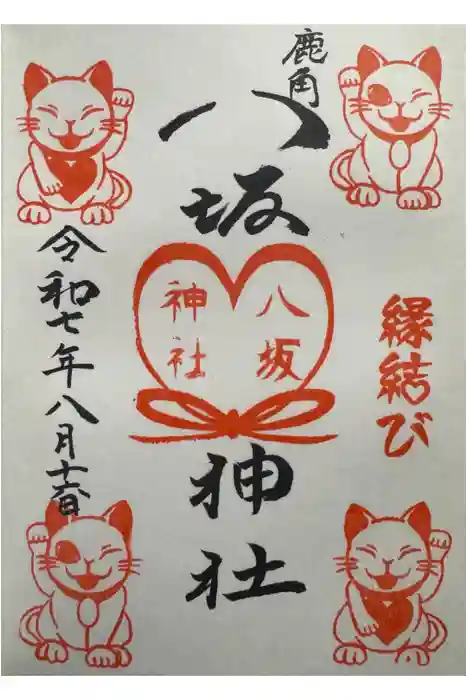 鹿角
縁結び
八坂神社
八坂
神社
令和七年八月十六日